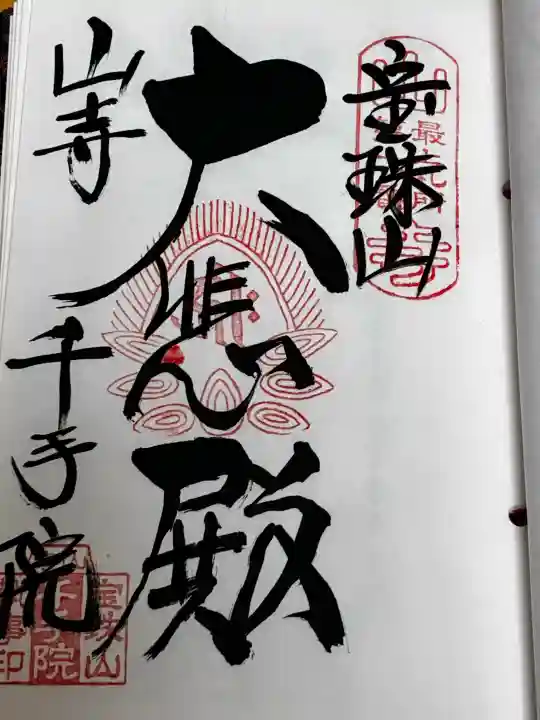 宝珠山
大悲殿
山寺 千手院
宝珠山
千手院
印